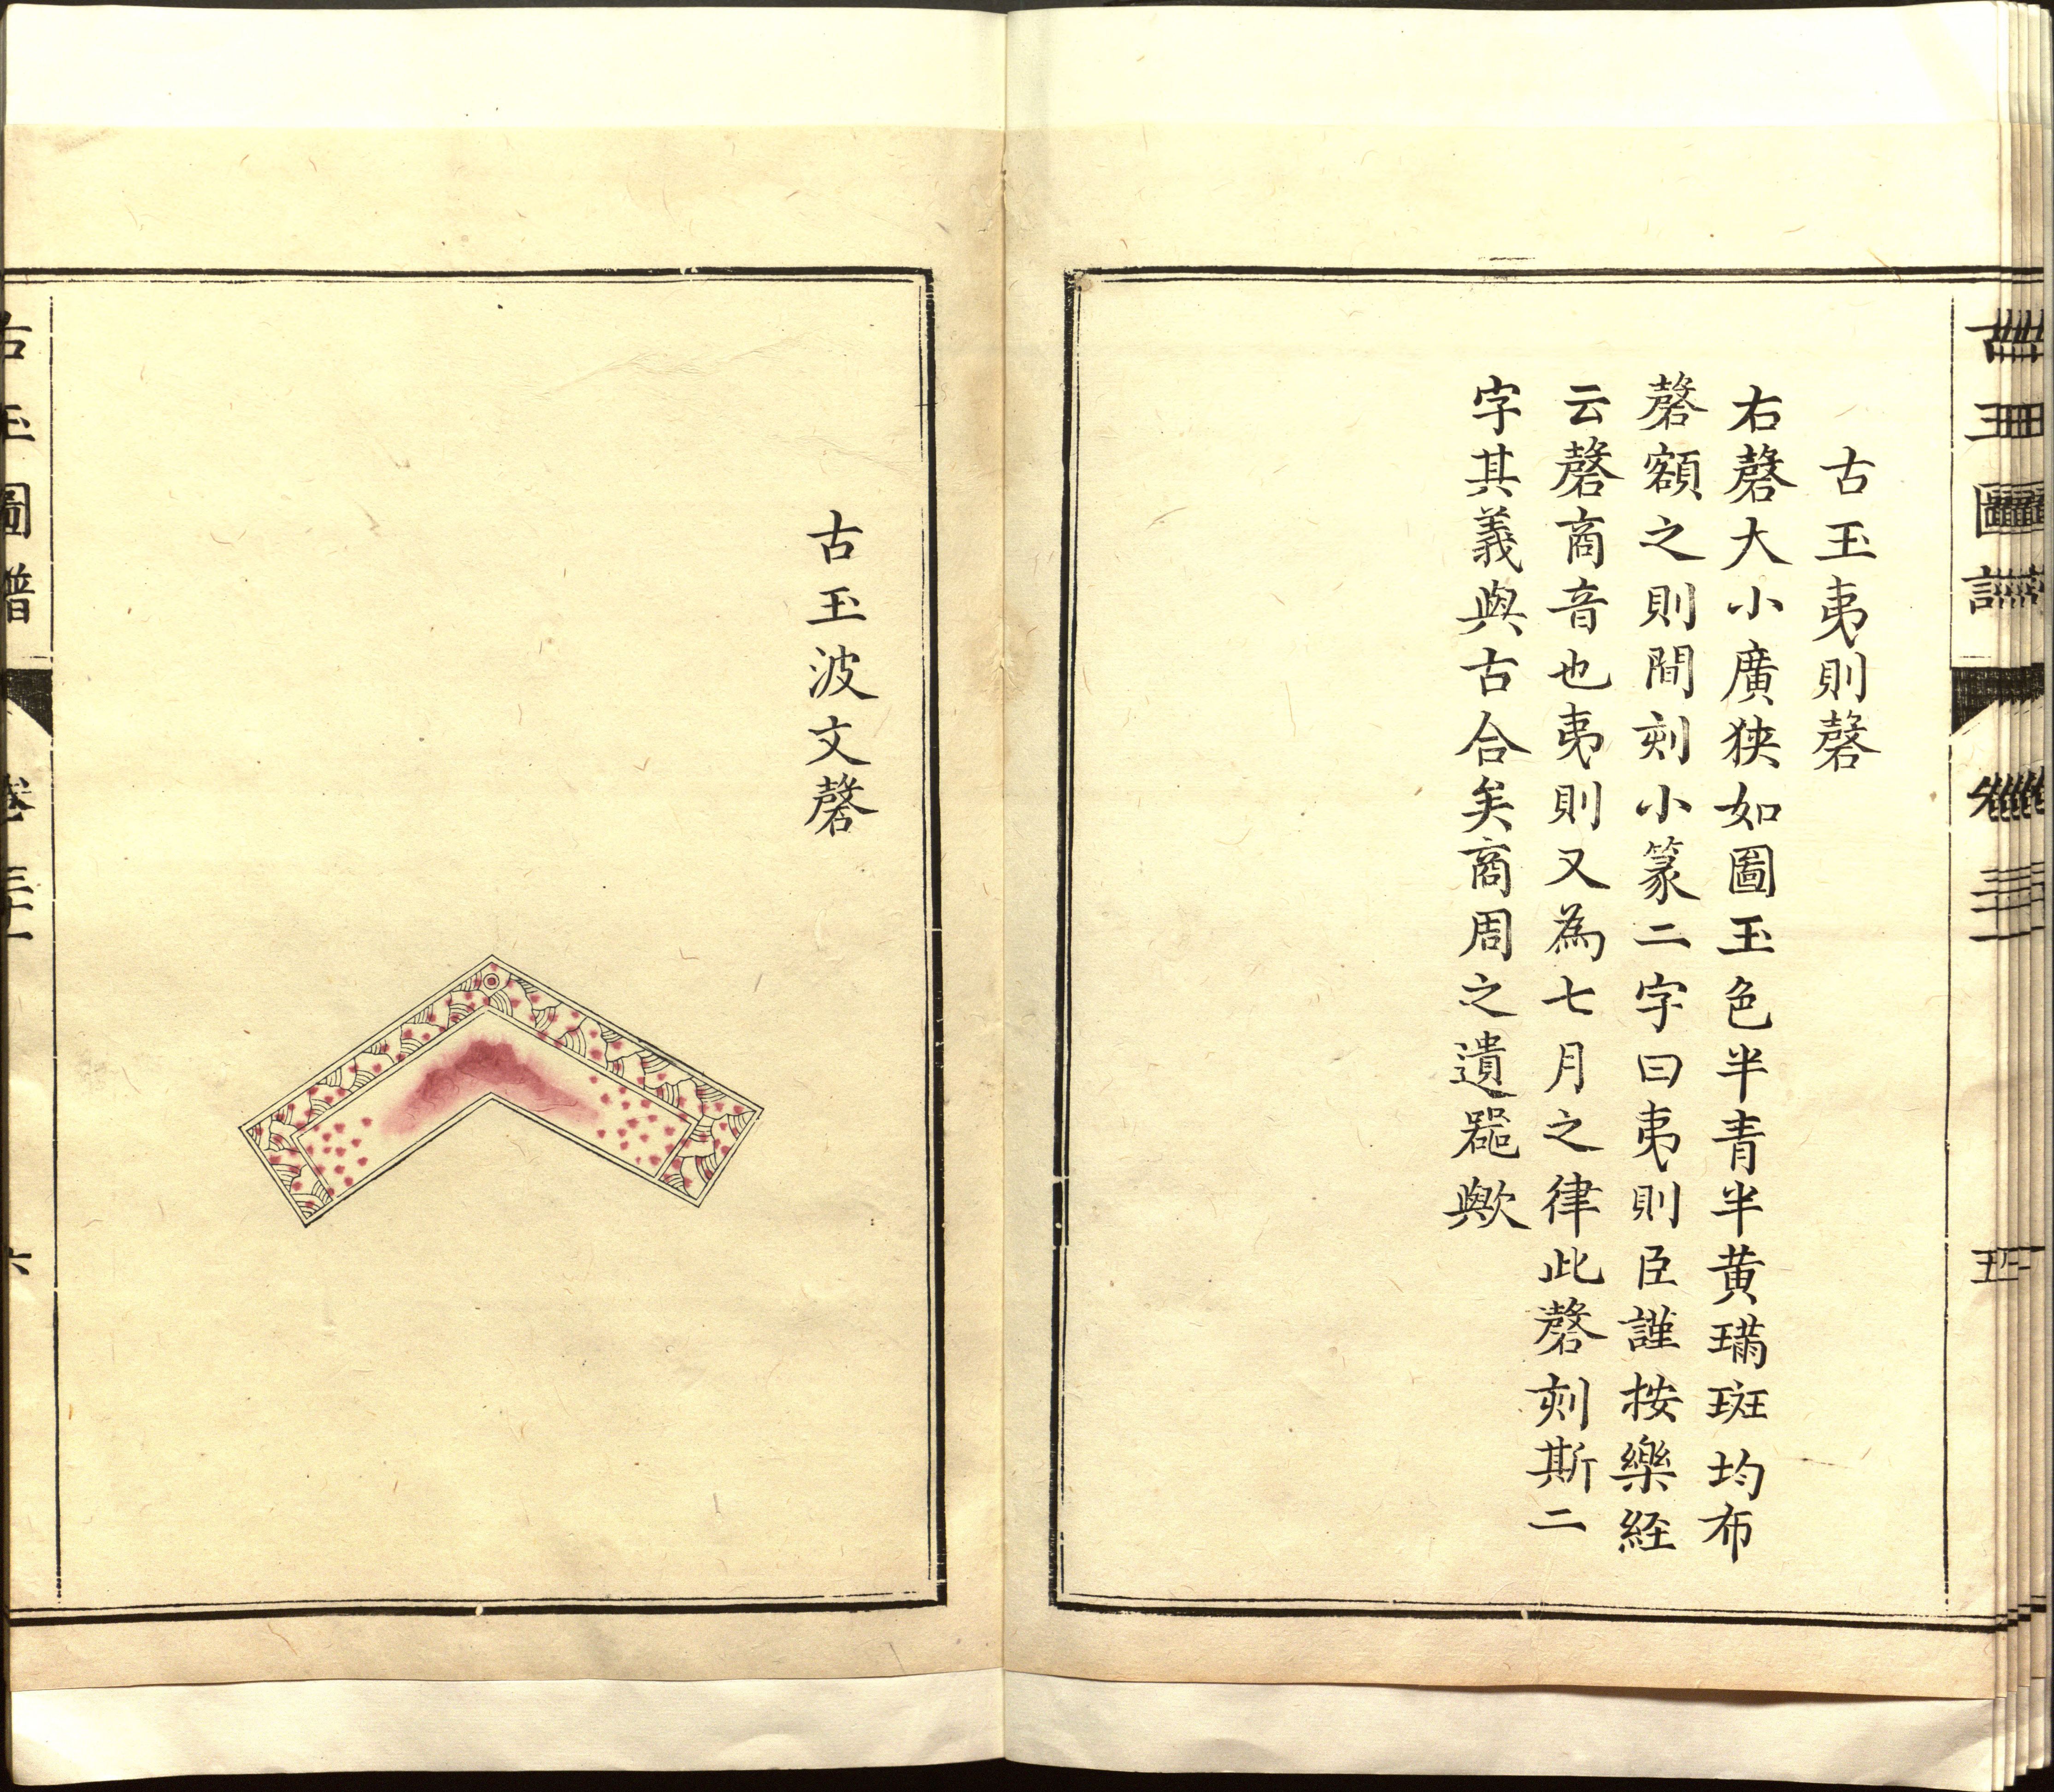 古玉夷則磬
右磬大小廣狹如圖玉色半青半黃璊斑均布
磬額之則間刻小篆二字曰夷則臣謹按樂経
云磬商音也夷則又為七月之律此磬刻斯二
字其義與古合矣商周之遺器歟
古玉波文磬
古玉圖譜 卷三十一 六